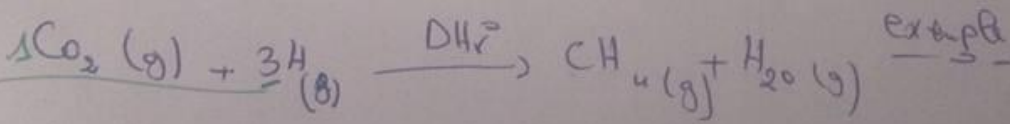 1CO₂ (g) + 3H (g) —DHr°→ CH₄ (g) + H₂O (g) example